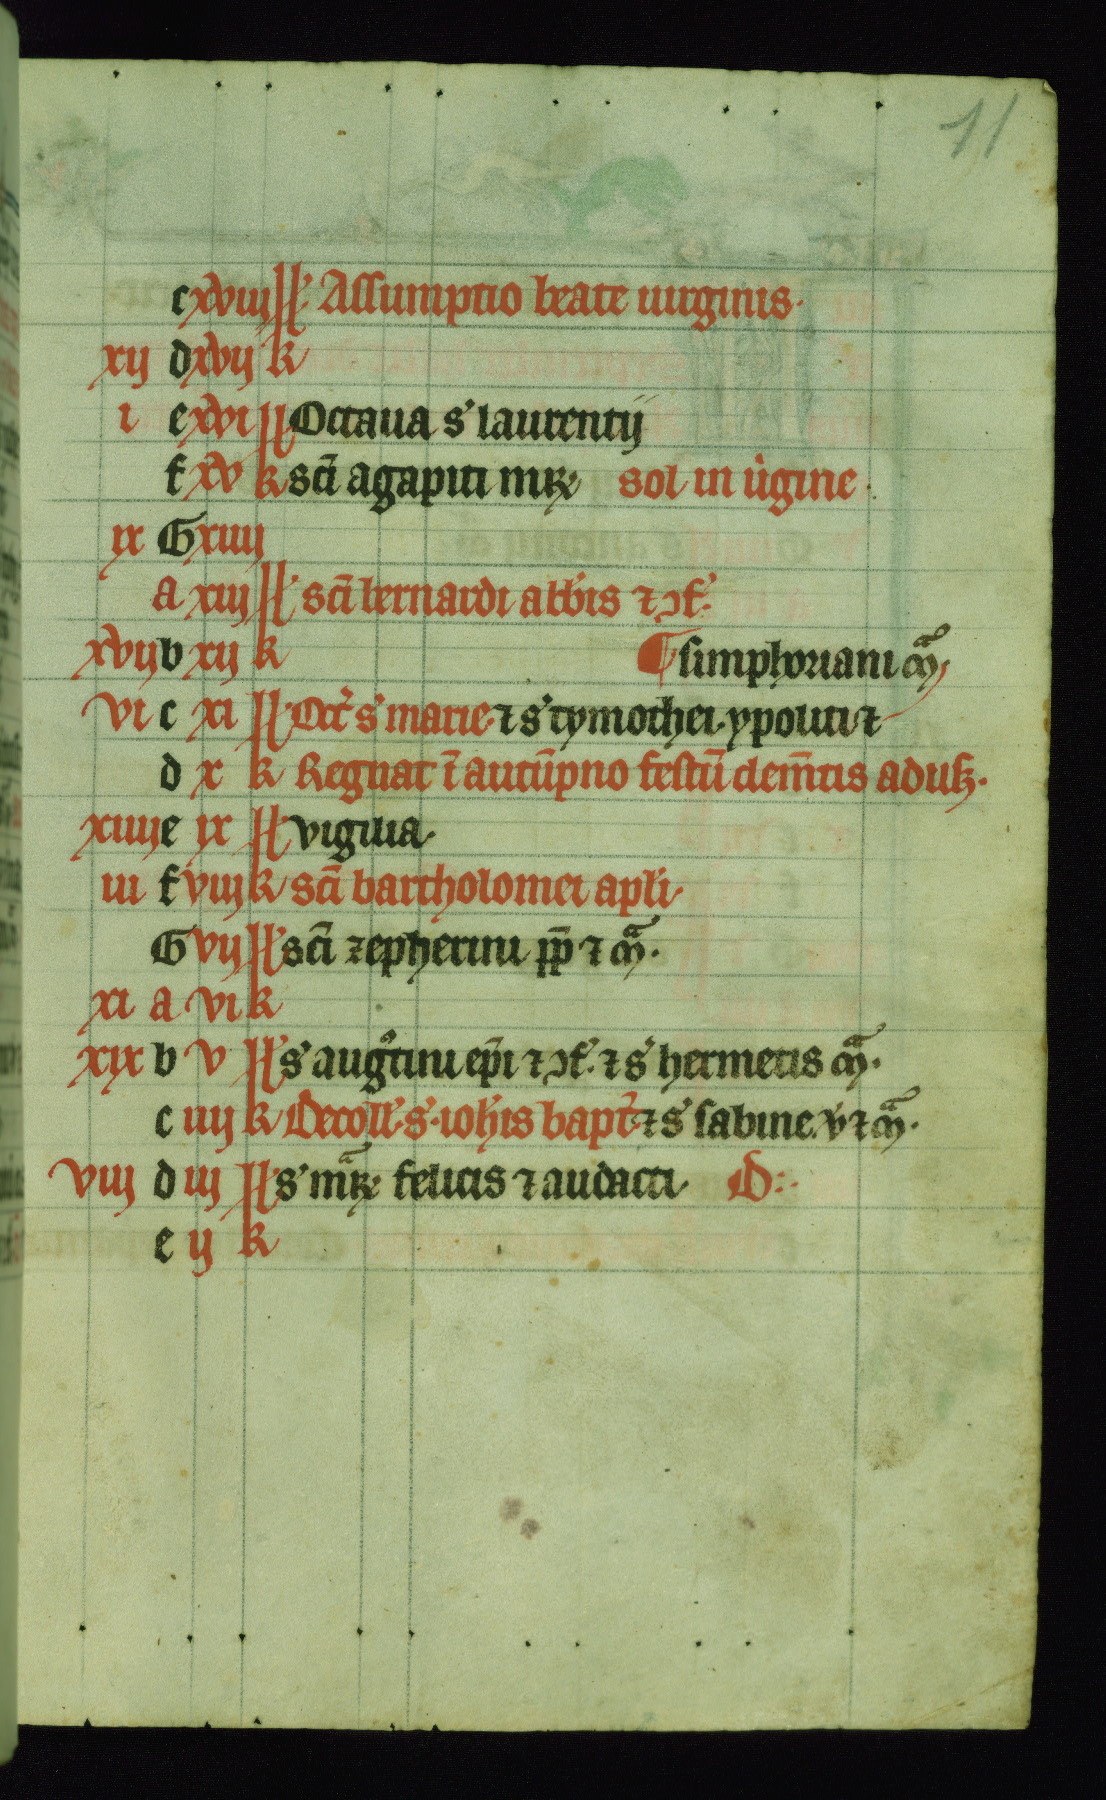 11
c xviii kl Assumptio beate uirginis.
xij d xvij k
i e xvi kl Octaua s' laurentij
f xv k sci agapiti mr sol in uigine.
ix G xiiij
a xiij kl sci bernardi abbis ⁊ ɔf.
xvij b xij k simphoriani m
vi c xi kl Oct s' marie. ⁊ s' tymothei. ypoliti ⁊
d x k Regnat ī autūpno festū clemtis
xiiij e ix kl vigilia.
iii f viij k sci bartholomei apli.
G vij kl sci zepherini pp ⁊ m.
xi a vi k
xix b v kl s' augtini epi ⁊ ɔf. ⁊ s' hermetis m.
c iiij k Decoll. s. iohis bapt. ⁊ s' sabine. v ⁊ m.
viij d iij kl s' mr felicis ⁊ audacti. D
e ij k